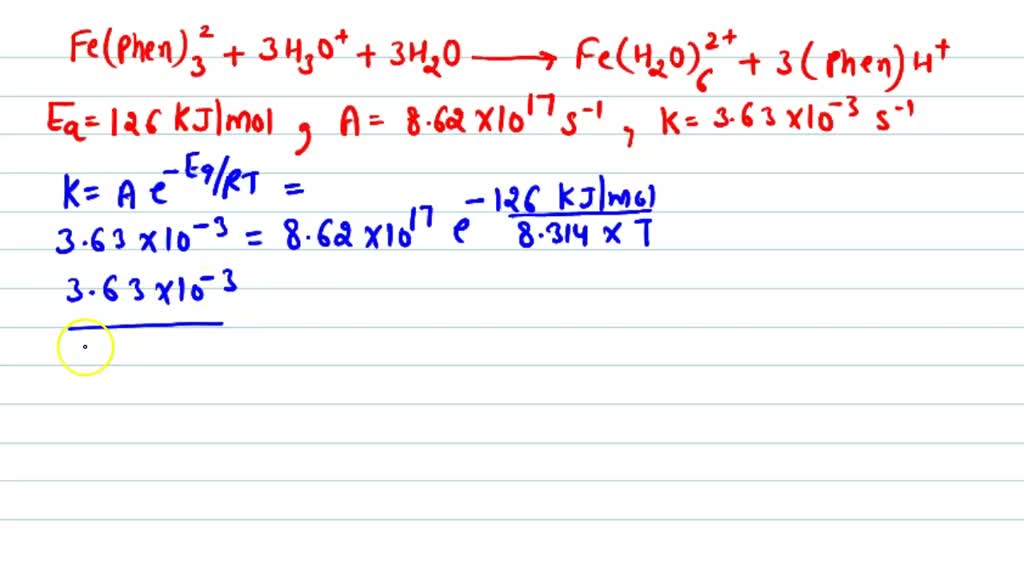 Fe(Phen)₃² + 3H₃O⁺ + 3H₂O ⟶ Fe(H₂O)₆²⁺ + 3(Phen)H⁺
Ea = 126 KJ/mol , A = 8.62 × 10¹⁷ s⁻¹ , K = 3.63 × 10⁻³ s⁻¹
K = A e^(-Ea/RT) =
3.63 × 10⁻³ = 8.62 × 10¹⁷ e^(-126 KJ/mol / 8.314 × T)
3.63 × 10⁻³